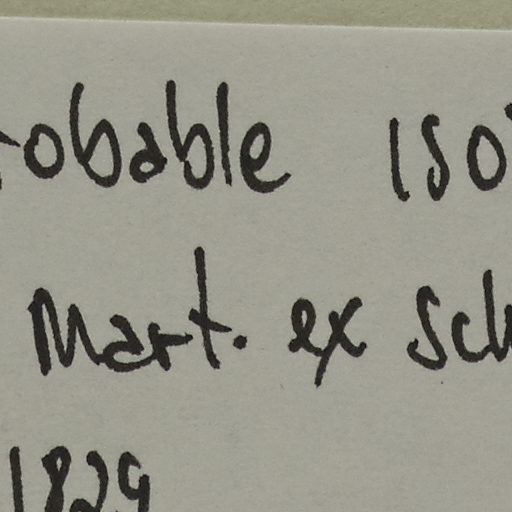 robable iso
Mart. ex Sch
1829